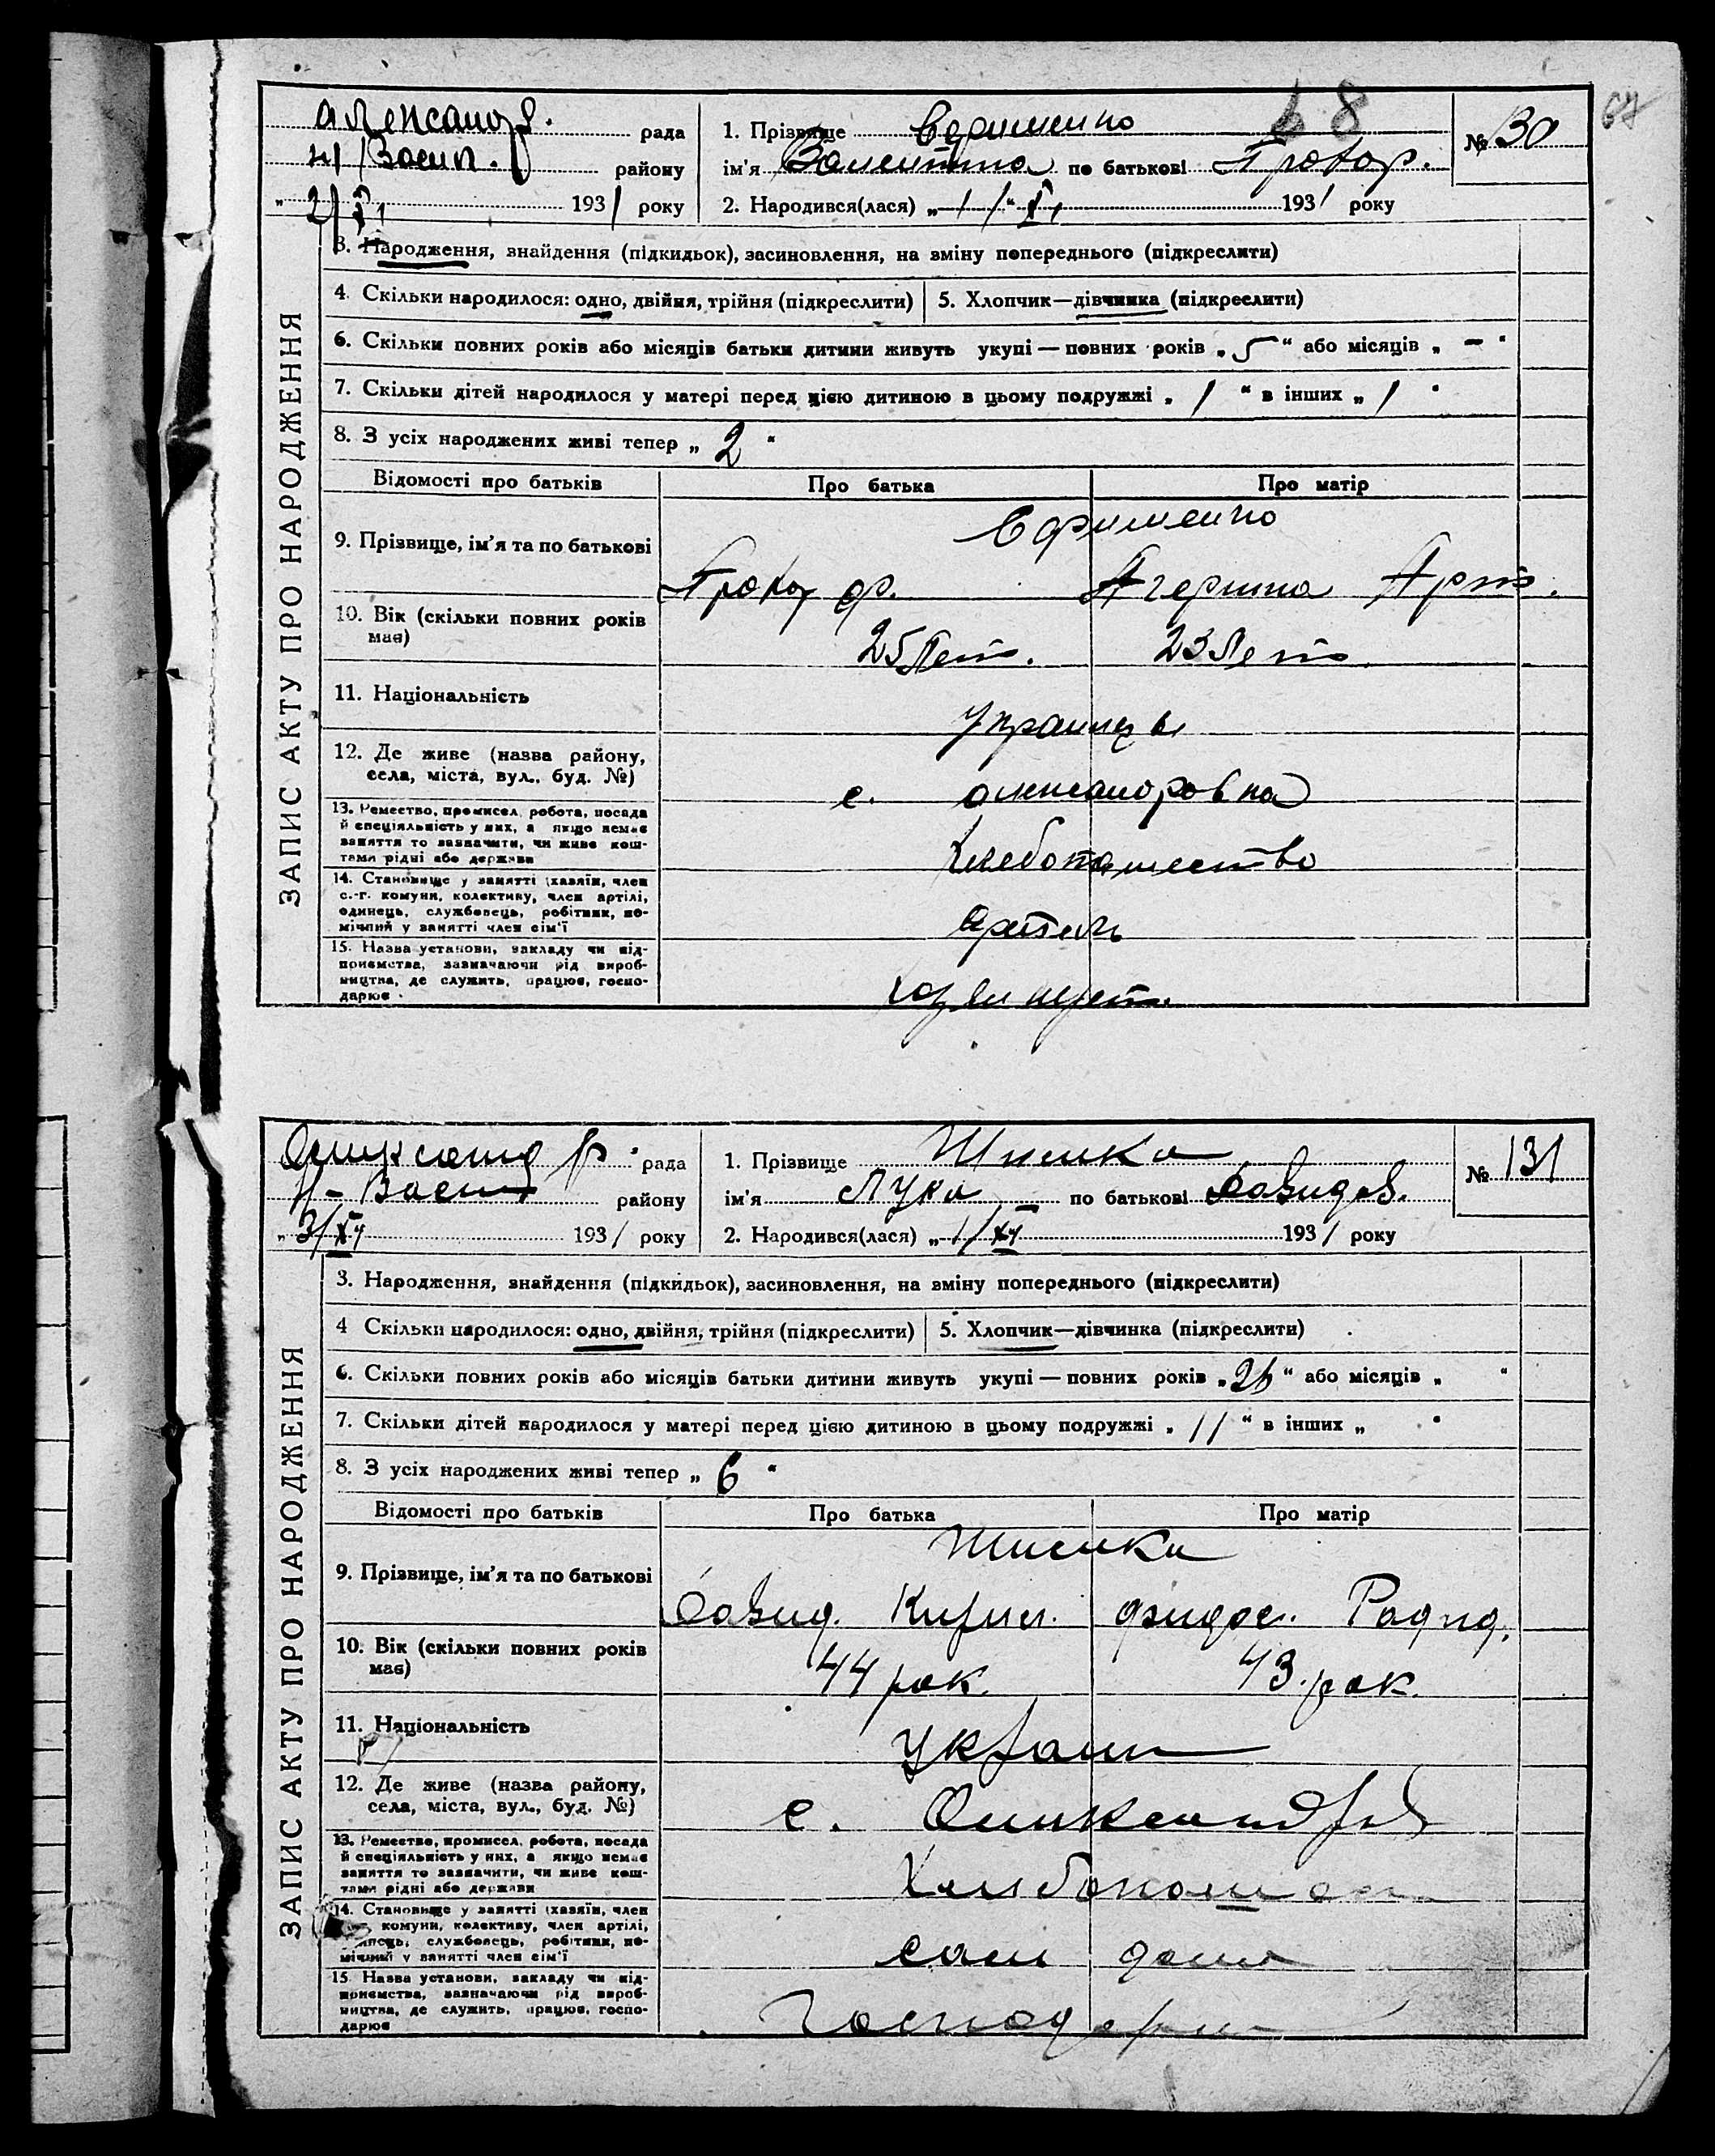 68
67
Александр. рада
Н/Васил. району
"2/XI 1931 року
1. Прізвище Ефименко
ім'я Валентина по батькові Прокоф.
2. Народився(лася) „1/"XI 1931 року
№ 130
ЗАПИС АКТУ ПРО НАРОДЖЕННЯ
3. Народження, знайдення (підкидьок), засиновлення, на зміну попереднього (підкреслити)
4. Скільки народилося: одно, двійня, трійня (підкреслити) 5. Хлопчик—дівчинка (підкреслити)
6. Скільки повних років або місяців батьки дитини живуть укупі — повних років „ 5 " або місяців „ — "
7. Скільки дітей народилося у матері перед цією дитиною в цьому подружжі „ 1 " в інших „ 1 "
8. З усіх народжених живі тепер „ 2 "
Відомості про батьків Про батька Про матір
9. Прізвище, ім'я та по батькові
Ефименко
Прокоф.
10. Вік (скільки повних років має)
25 Лет. 23 Лет.
11. Національність
Украинцы
12. Де живе (назва району,
села, міста, вул., буд. №)
с. Александровка
13. Ремество, промисел, робота, посада
й спеціяльність у них, а якщо немає
заняття то зазначити, чи живе кош-
тами рідні або держави
Хлебопашество
14. Становище у занятті (хазяїн, член
с.-г. комуни, колективу, член артілі,
одинець, службовець, робітник, по-
мічний у занятті член сім'ї
артель
15. Назва установи, закладу чи під-
приємства, зазначаючи рід вироб-
ництва, де служить, працює, госпо-
дарює
рада
Н-Васил району
„3/XII 1931 року
1. Прізвище
ім'я Лука по батькові Давидов.
2. Народився(лася) „1/XII 1931 року
№ 131
ЗАПИС АКТУ ПРО НАРОДЖЕННЯ
3. Народження, знайдення (підкидьок), засиновлення, на зміну попереднього (підкреслити)
4 Скільки народилося: одно, двійня, трійня (підкреслити) 5. Хлопчик—дівчинка (підкреслити)
6. Скільки повних років або місяців батьки дитини живуть укупі — повних років „26" або місяців „ "
7. Скільки дітей народилося у матері перед цією дитиною в цьому подружжі „ 11 " в інших „ "
8. З усіх народжених живі тепер „ 6 "
Відомості про батьків Про батька Про матір
9. Прізвище, ім'я та по батькові
Давид. Кирил.
10. Вік (скільки повних років
має)
44 рок. 43 рок.
11. Національність
Україн
12. Де живе (назва району,
села, міста, вул., буд. №)
с.
13. Ремество, промисел, робота, посада
й спеціяльність у них, а якщо немає
заняття то зазначити, чи живе кош-
тами рідні або держави
14. Становище у занятті (хазяїн, член
комуни, колективу, член артілі,
службовець, робітник, по-
мічний у занятті член сім'ї
15. Назва установи, закладу чи під-
приємства, зазначаючи рід вироб-
ництва, де служить, працює, госпо-
дарює